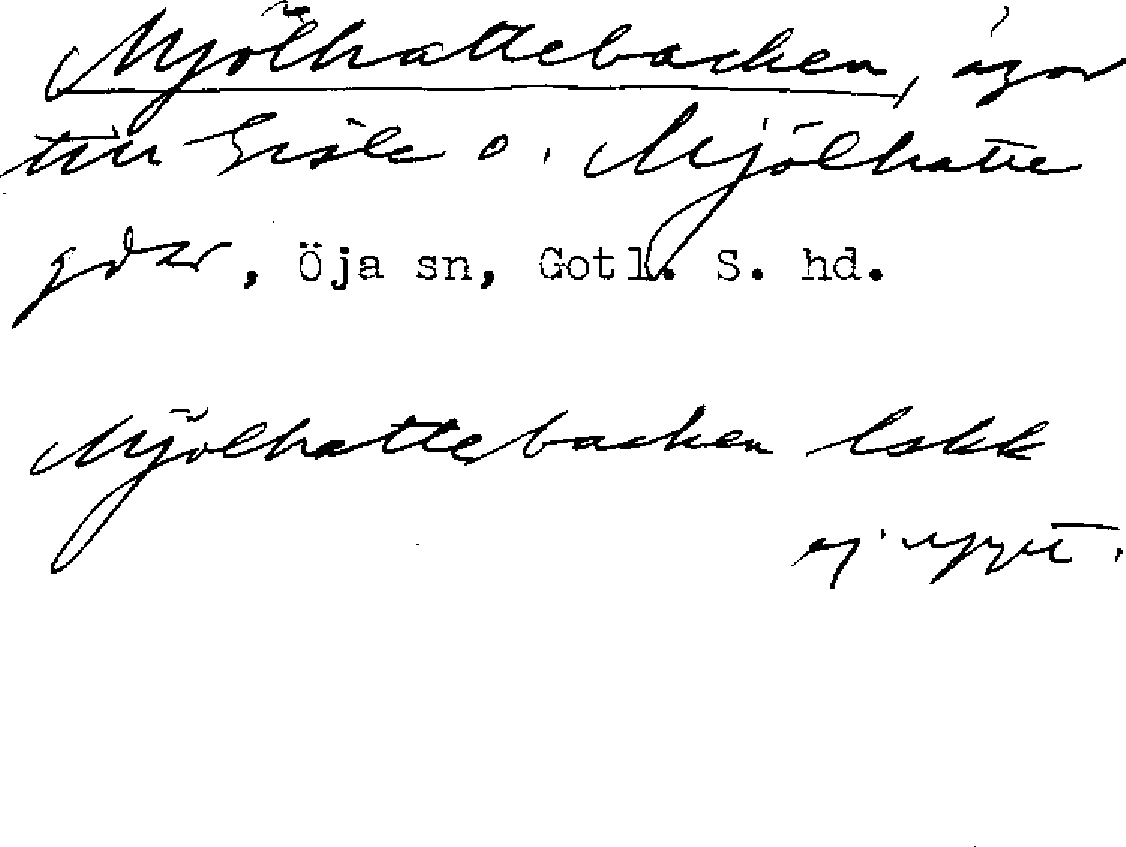 Mjölhattebacken, ägor
till Gisle o. Mjölhatte
gdar, Öja sn, Gotl. S. hd.
Mjölhattebacken lskk
ej uppt.